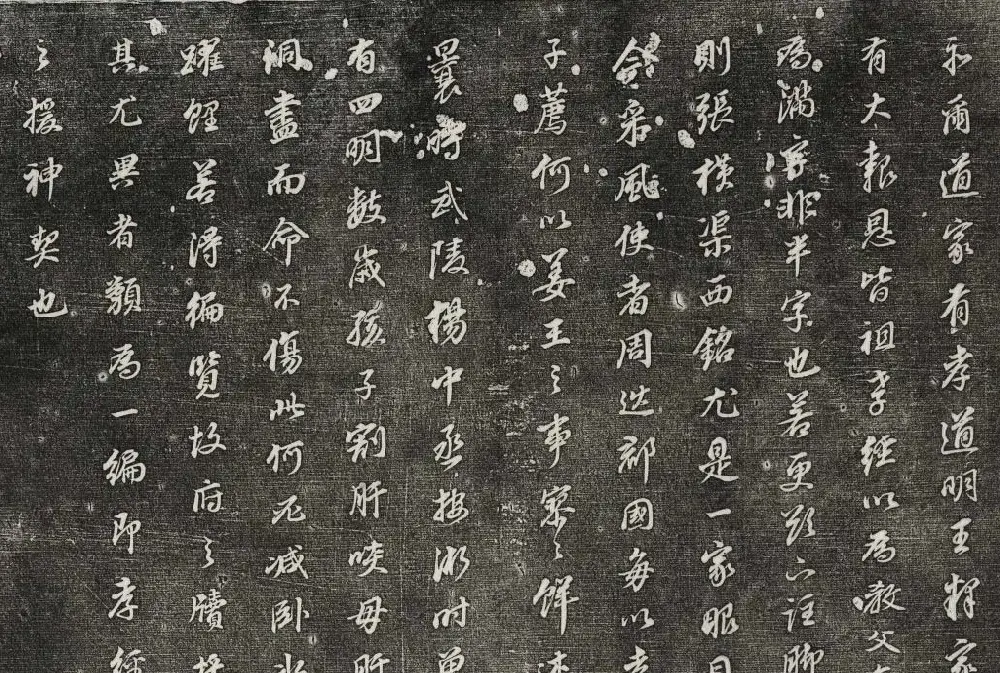 示爾道家有孝道明王釋家
有大報恩皆祖孝經以為教父
為滿字非半字也若更欲下註脚
則張橫渠西銘尤是一家眼目
風使者周巡郡國每以孝
子薦何以姜王之事寥寥鮮
曩時武陵楊中丞按浙時曾
有四明數歲孩子割肝啖母肝
洞盡而命不傷此何尤減臥冰
躍鯉若得編覽故府之牘
其尤異者類為一編即孝經
之援神契也